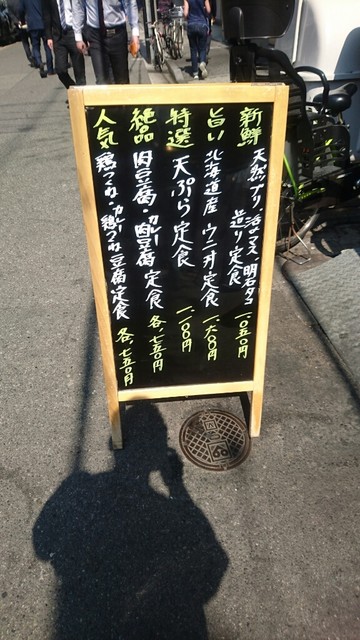 新鮮 天然ブリ、活〆マス、明石タコ
造り定食 一、〇五〇円
旨い 北海道産 ウニ丼定食 一、六〇〇円
特選 天ぷら定食 一、一〇〇円
絶品 肉豆腐・カレー肉豆腐 定食 各、七五〇円
人気 鶏つくね・カレー鶏つくね豆腐定食 各、七五〇円